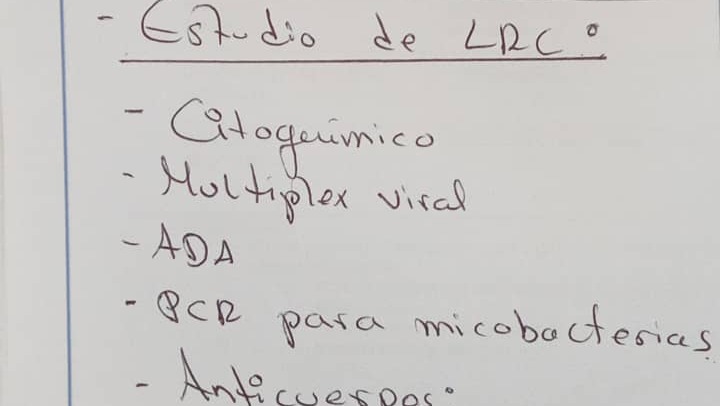 - Estudio de LRC:
- Citoquímico
- Multiplex viral
- ADA
- PCR para micobacterias
- Anticuerpos: